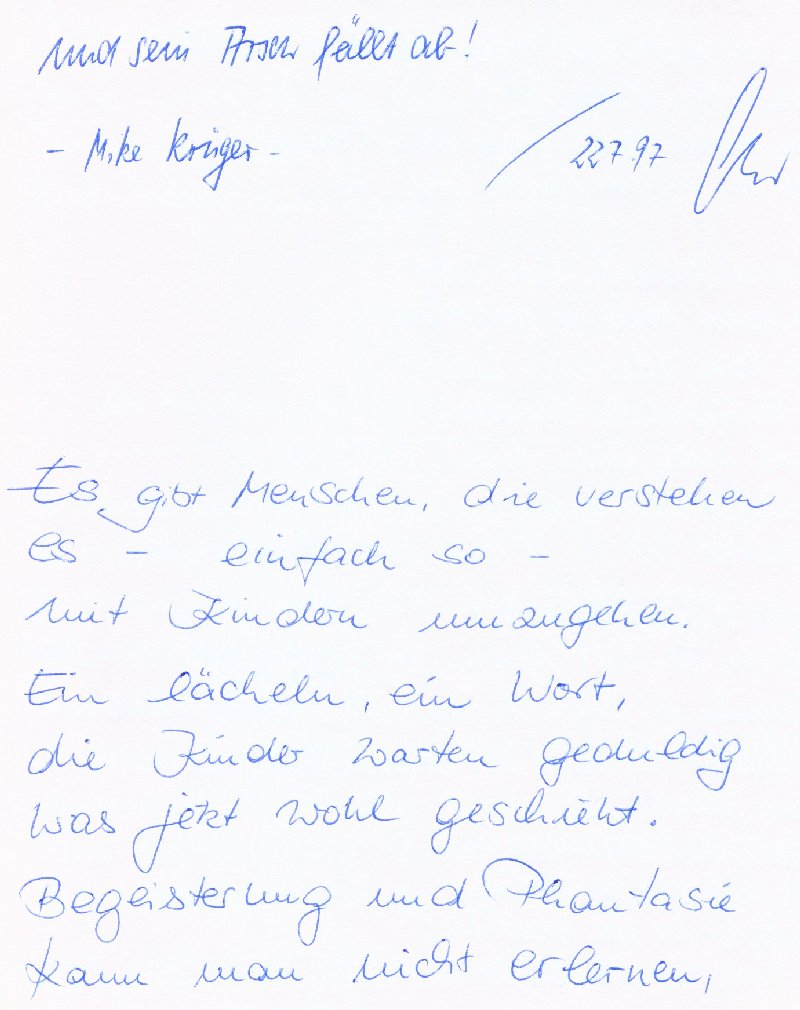 und sein Arsch fällt ab!
- Mike Krüger - / 22.7.97
Es gibt Menschen, die verstehen
es - einfach so -
mit Kindern umzugehen.
Ein lächeln, ein Wort,
die Kinder warten geduldig
was jetzt wohl geschieht.
Begeisterung und Phantasie
kann man nicht erlernen,